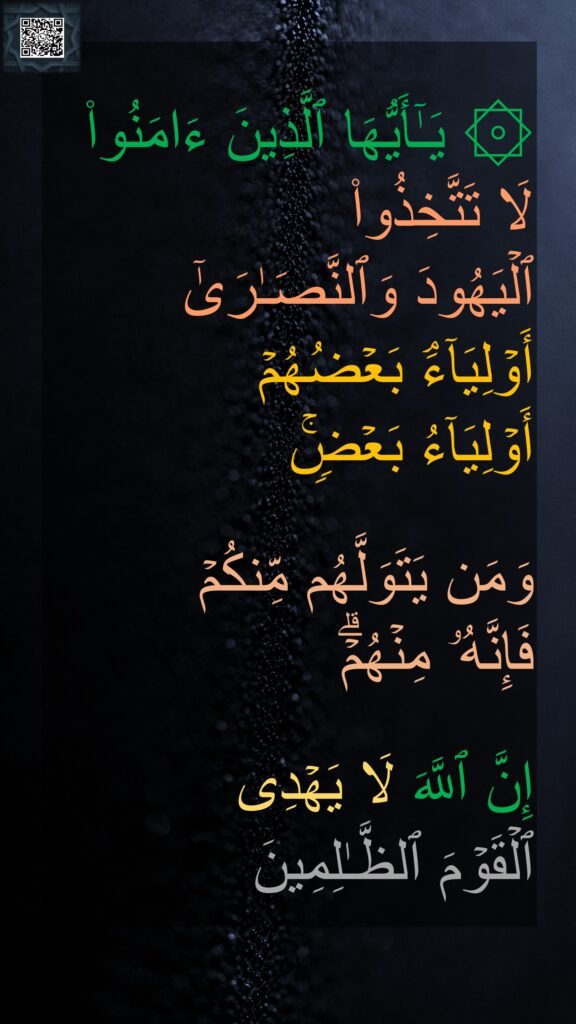 ۞ يَـٰٓأَيُّهَا ٱلَّذِينَ ءَامَنُوا۟
لَا تَتَّخِذُوا۟
ٱلۡيَهُودَ وَٱلنَّصَـٰرَىٰٓ
أَوۡلِيَآءَۘ بَعۡضُهُمۡ
أَوۡلِيَآءُ بَعۡضࣲۚ
وَمَن يَتَوَلَّهُم مِّنكُمۡ
فَإِنَّهُۥ مِنۡهُمۡۗ
إِنَّ ٱللَّهَ لَا يَهۡدِى
ٱلۡقَوۡمَ ٱلظَّـٰلِمِينَ